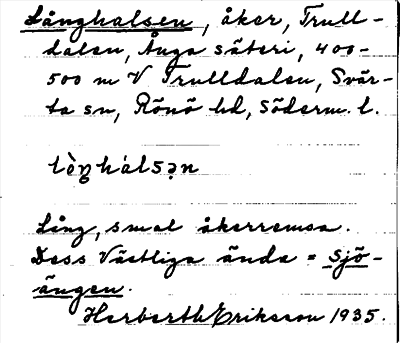 Långhalsen, åker, Trull-
dalen, Ånga säteri, 400-
500 m V Trulldalen, Svär-
ta sn, Rönö hd, Söderm. l.
lòŋhálsən
Lång, smal åkerremsa.
Dess västliga ände = Sjö-
ängen.
Herberth Eriksson 1935.